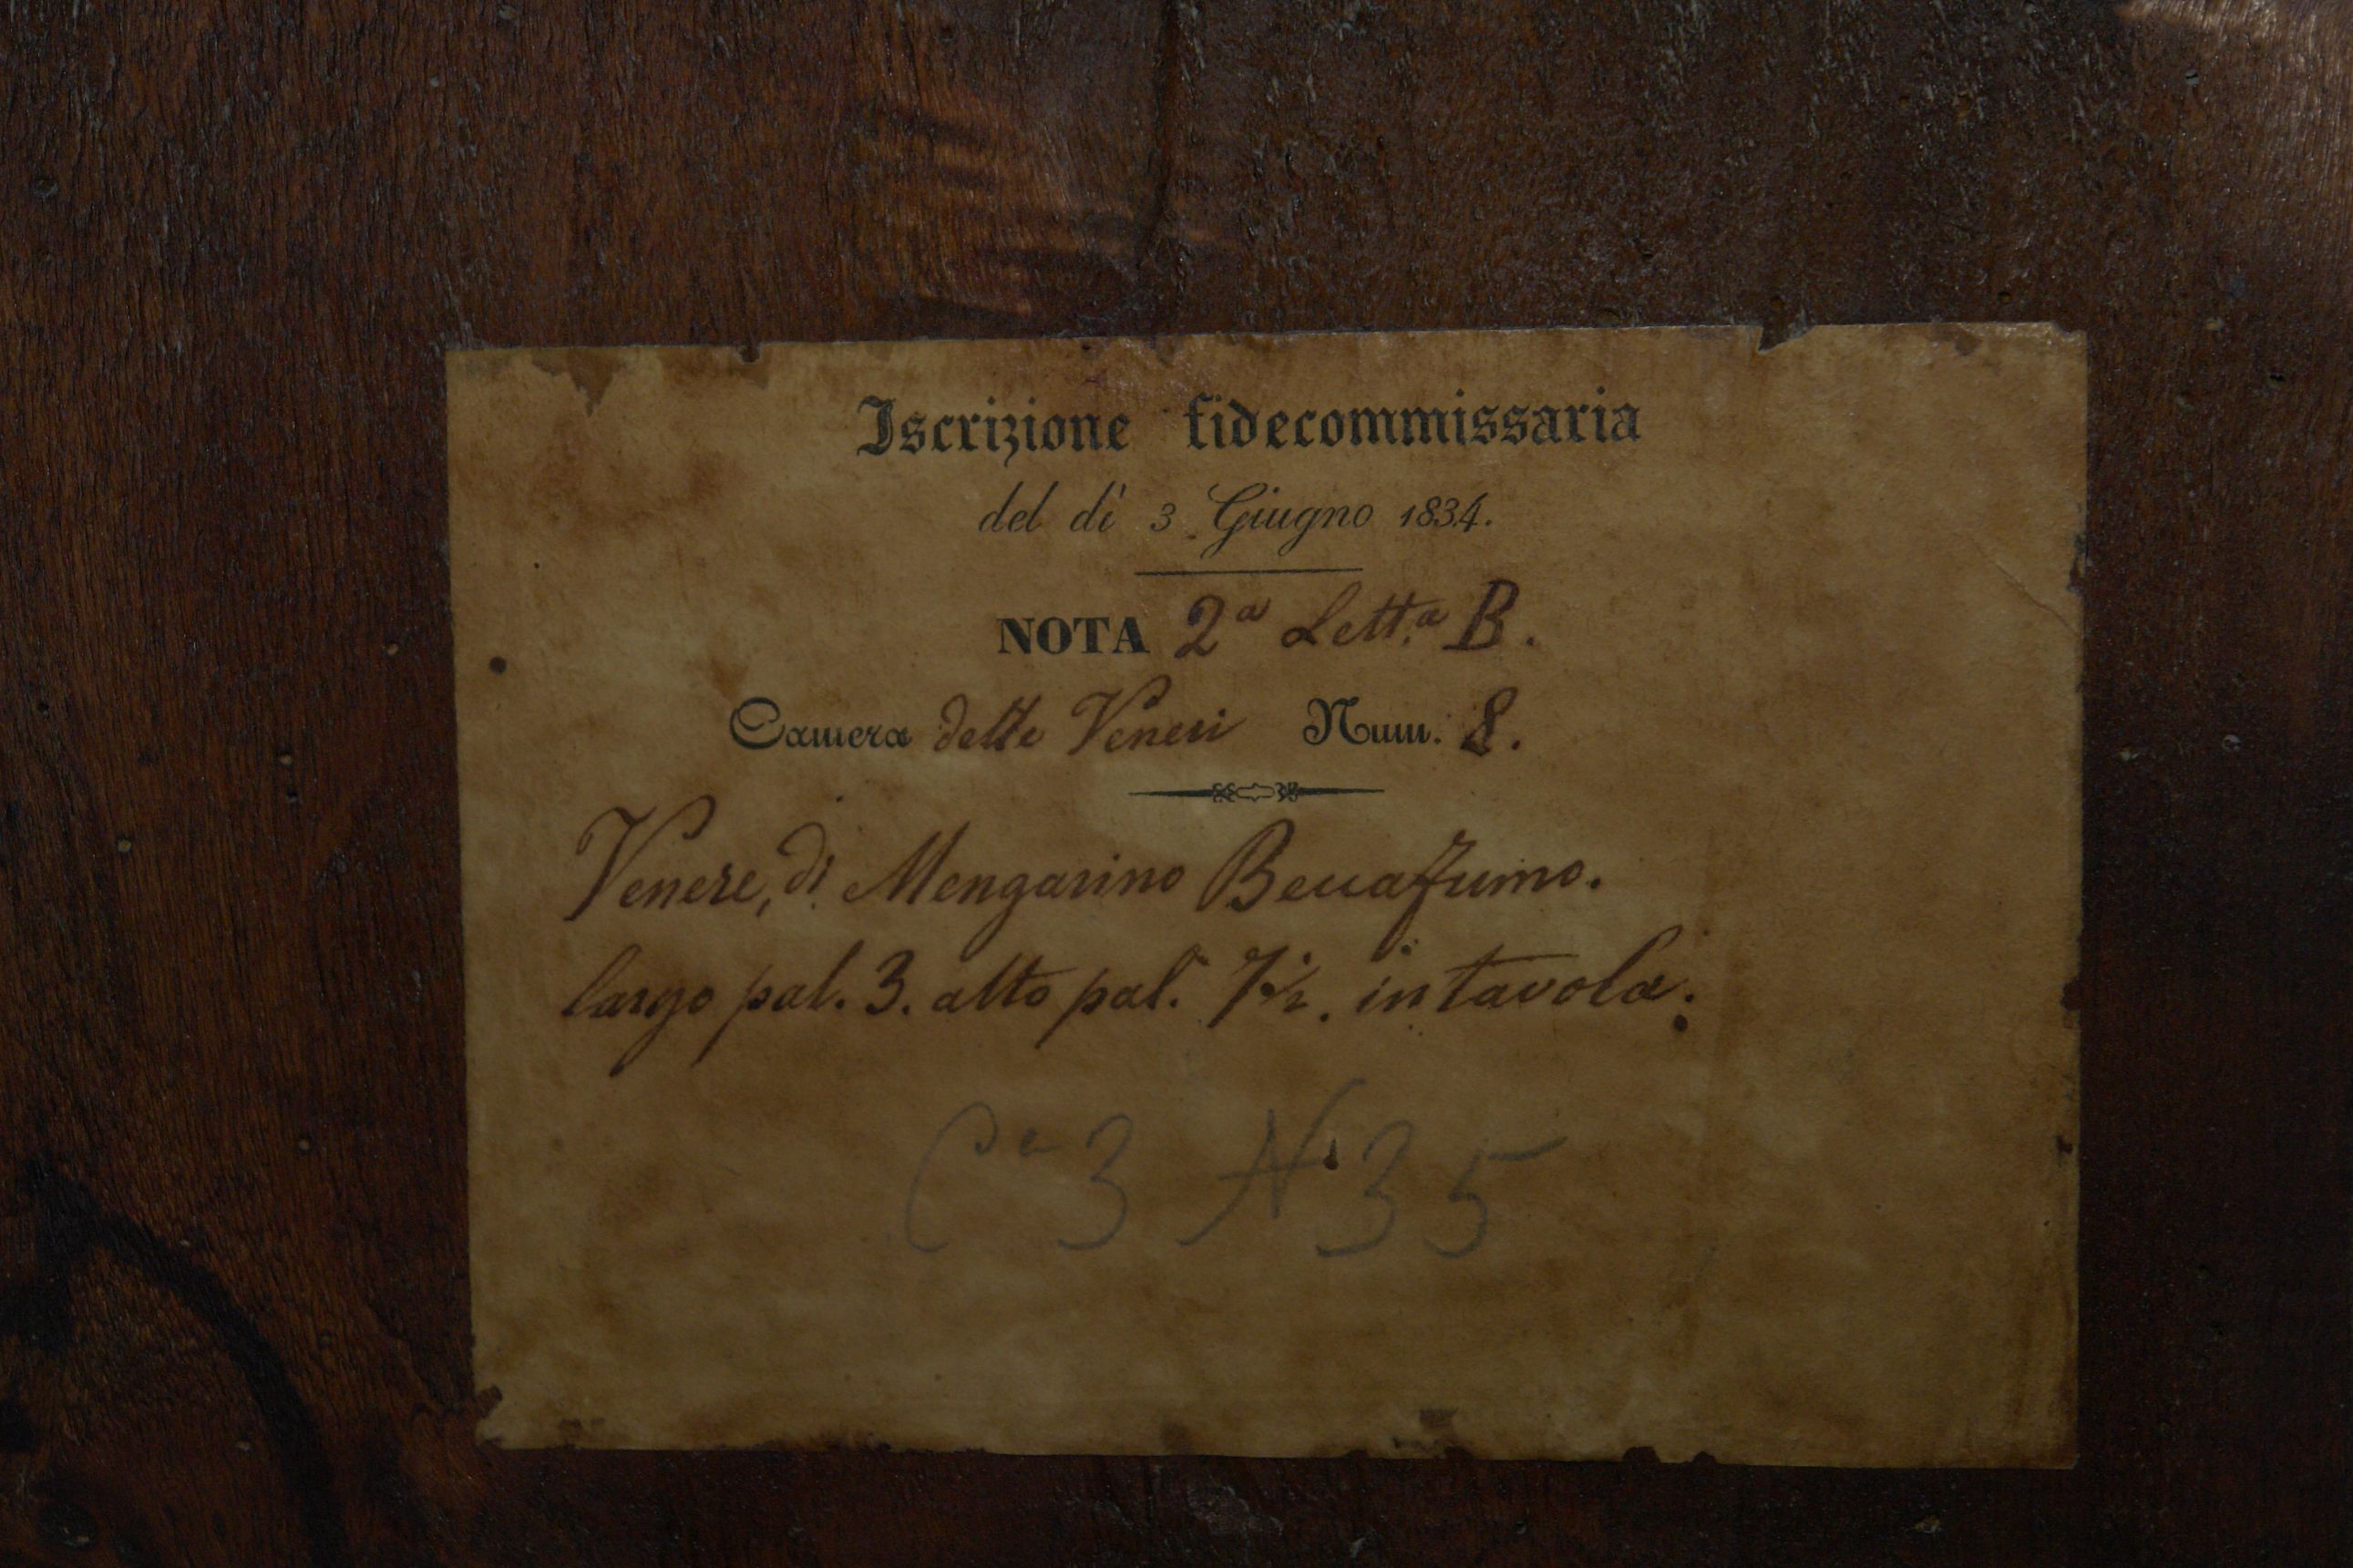 Iscrizione fidecommissaria
del dì 3 Giugno 1834.
NOTA 2a Lett.a B.
Camera delle Veneri Num. 8.
Venere, di Mengarino Beccafumo.
largo pal. 3. alto pal. 7 1/2. in tavola.
Ca 3 N 35